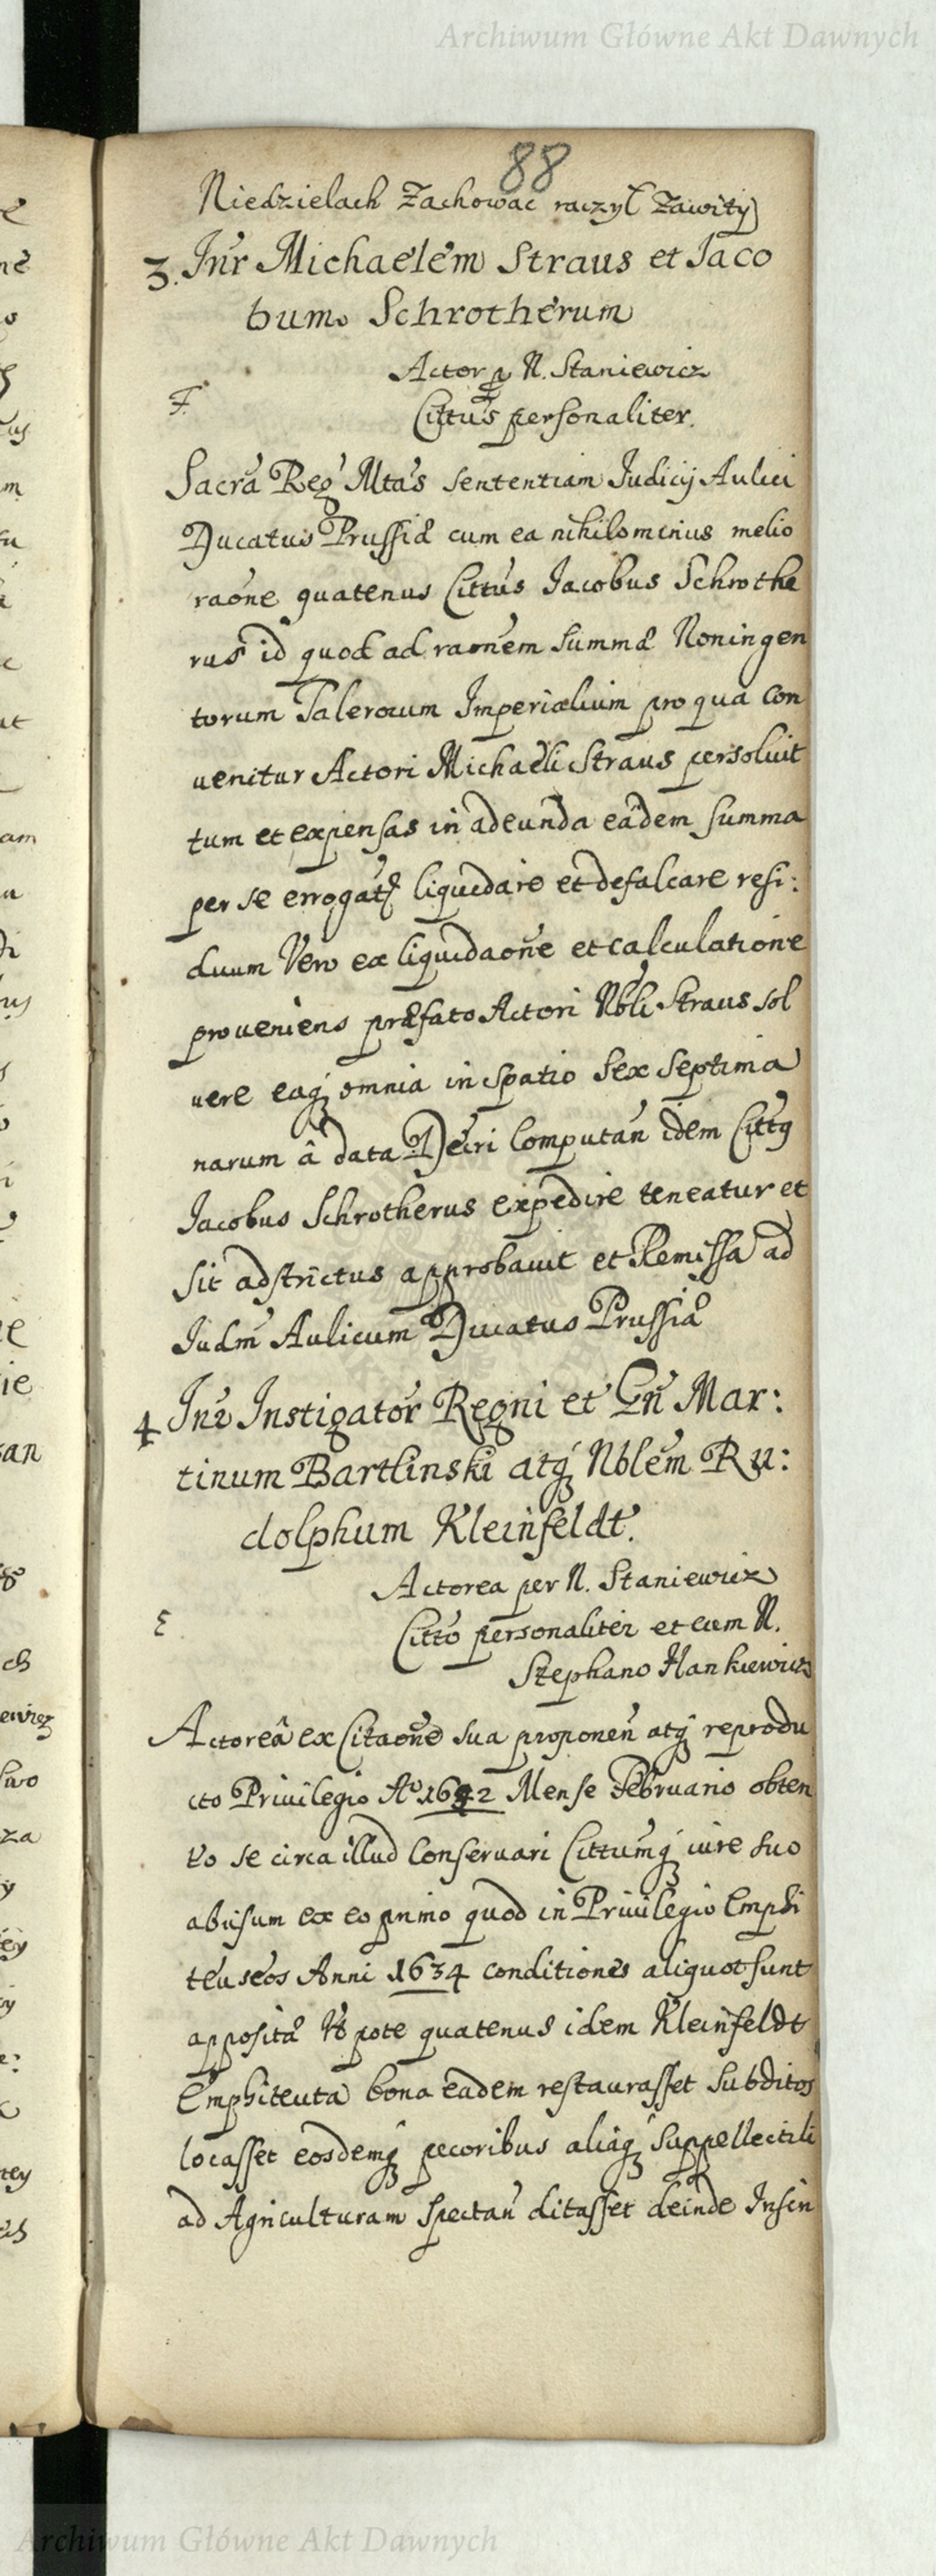 Archiwum Główne Akt Dawnych
88
Niedzielach Zachowac raczył Zawity)
3. Inr Michaelem Straus et Jaco
bum Schrotherum
Actor p N. Staniewicz
F.
Cittus personaliter.
Sacra Reg Mtas sententiam Judicij Aulici
Ducatus Prussiæ cum ea nihilominus melio
raone quatenus Cittus Jacobus Schrothe
rus id quod ad raonem summæ Noningen
torum Talerorum Imperialium pro qua con
venitur Actori Michaeli Straus persolvit
tum et expensas in adeunda eadem summa
per se errogatę liquidare et defalcare resi:
duum Vero ex liquidaone et calculatione
proveniens præfato Actori Nbli Straus sol
vere eaq omnia in spatio sex septima
narum â data Decri computan idem Cittq
Jacobus Schrotherus expedire teneatur et
sit adstrictus approbavit et Remissa ad
Judm Aulicum Ducatus Prussiæ
4 Inr Instigator Regni et Gn Mar:
tinum Bartlinski atq Nblem Ru:
dolphum Kleinfeldt.
Actorea per N. Staniewicz
E
Citto personaliter et cum N.
Stephano Hankiewicz
Actoreâ ex Citaone sua proponen atq reprodu
cto Privilegio Ao 1642 Mense Februario obten
to se circa illud Conservari Cittumq iure suo
abusum ex eo primo quod in Privilegio Emphi
teuseos Anni 1634 conditiones aliquot sunt
appositæ Ut pote quatenus idem Kleinfeldt
Emphiteuta bona eadem restaurasset subditos
locasset eosdemq pecoribus aliaq suppellectili
ad Agriculturam spectan ditasset deinde Insin
Archiwum Główne Akt Dawnych